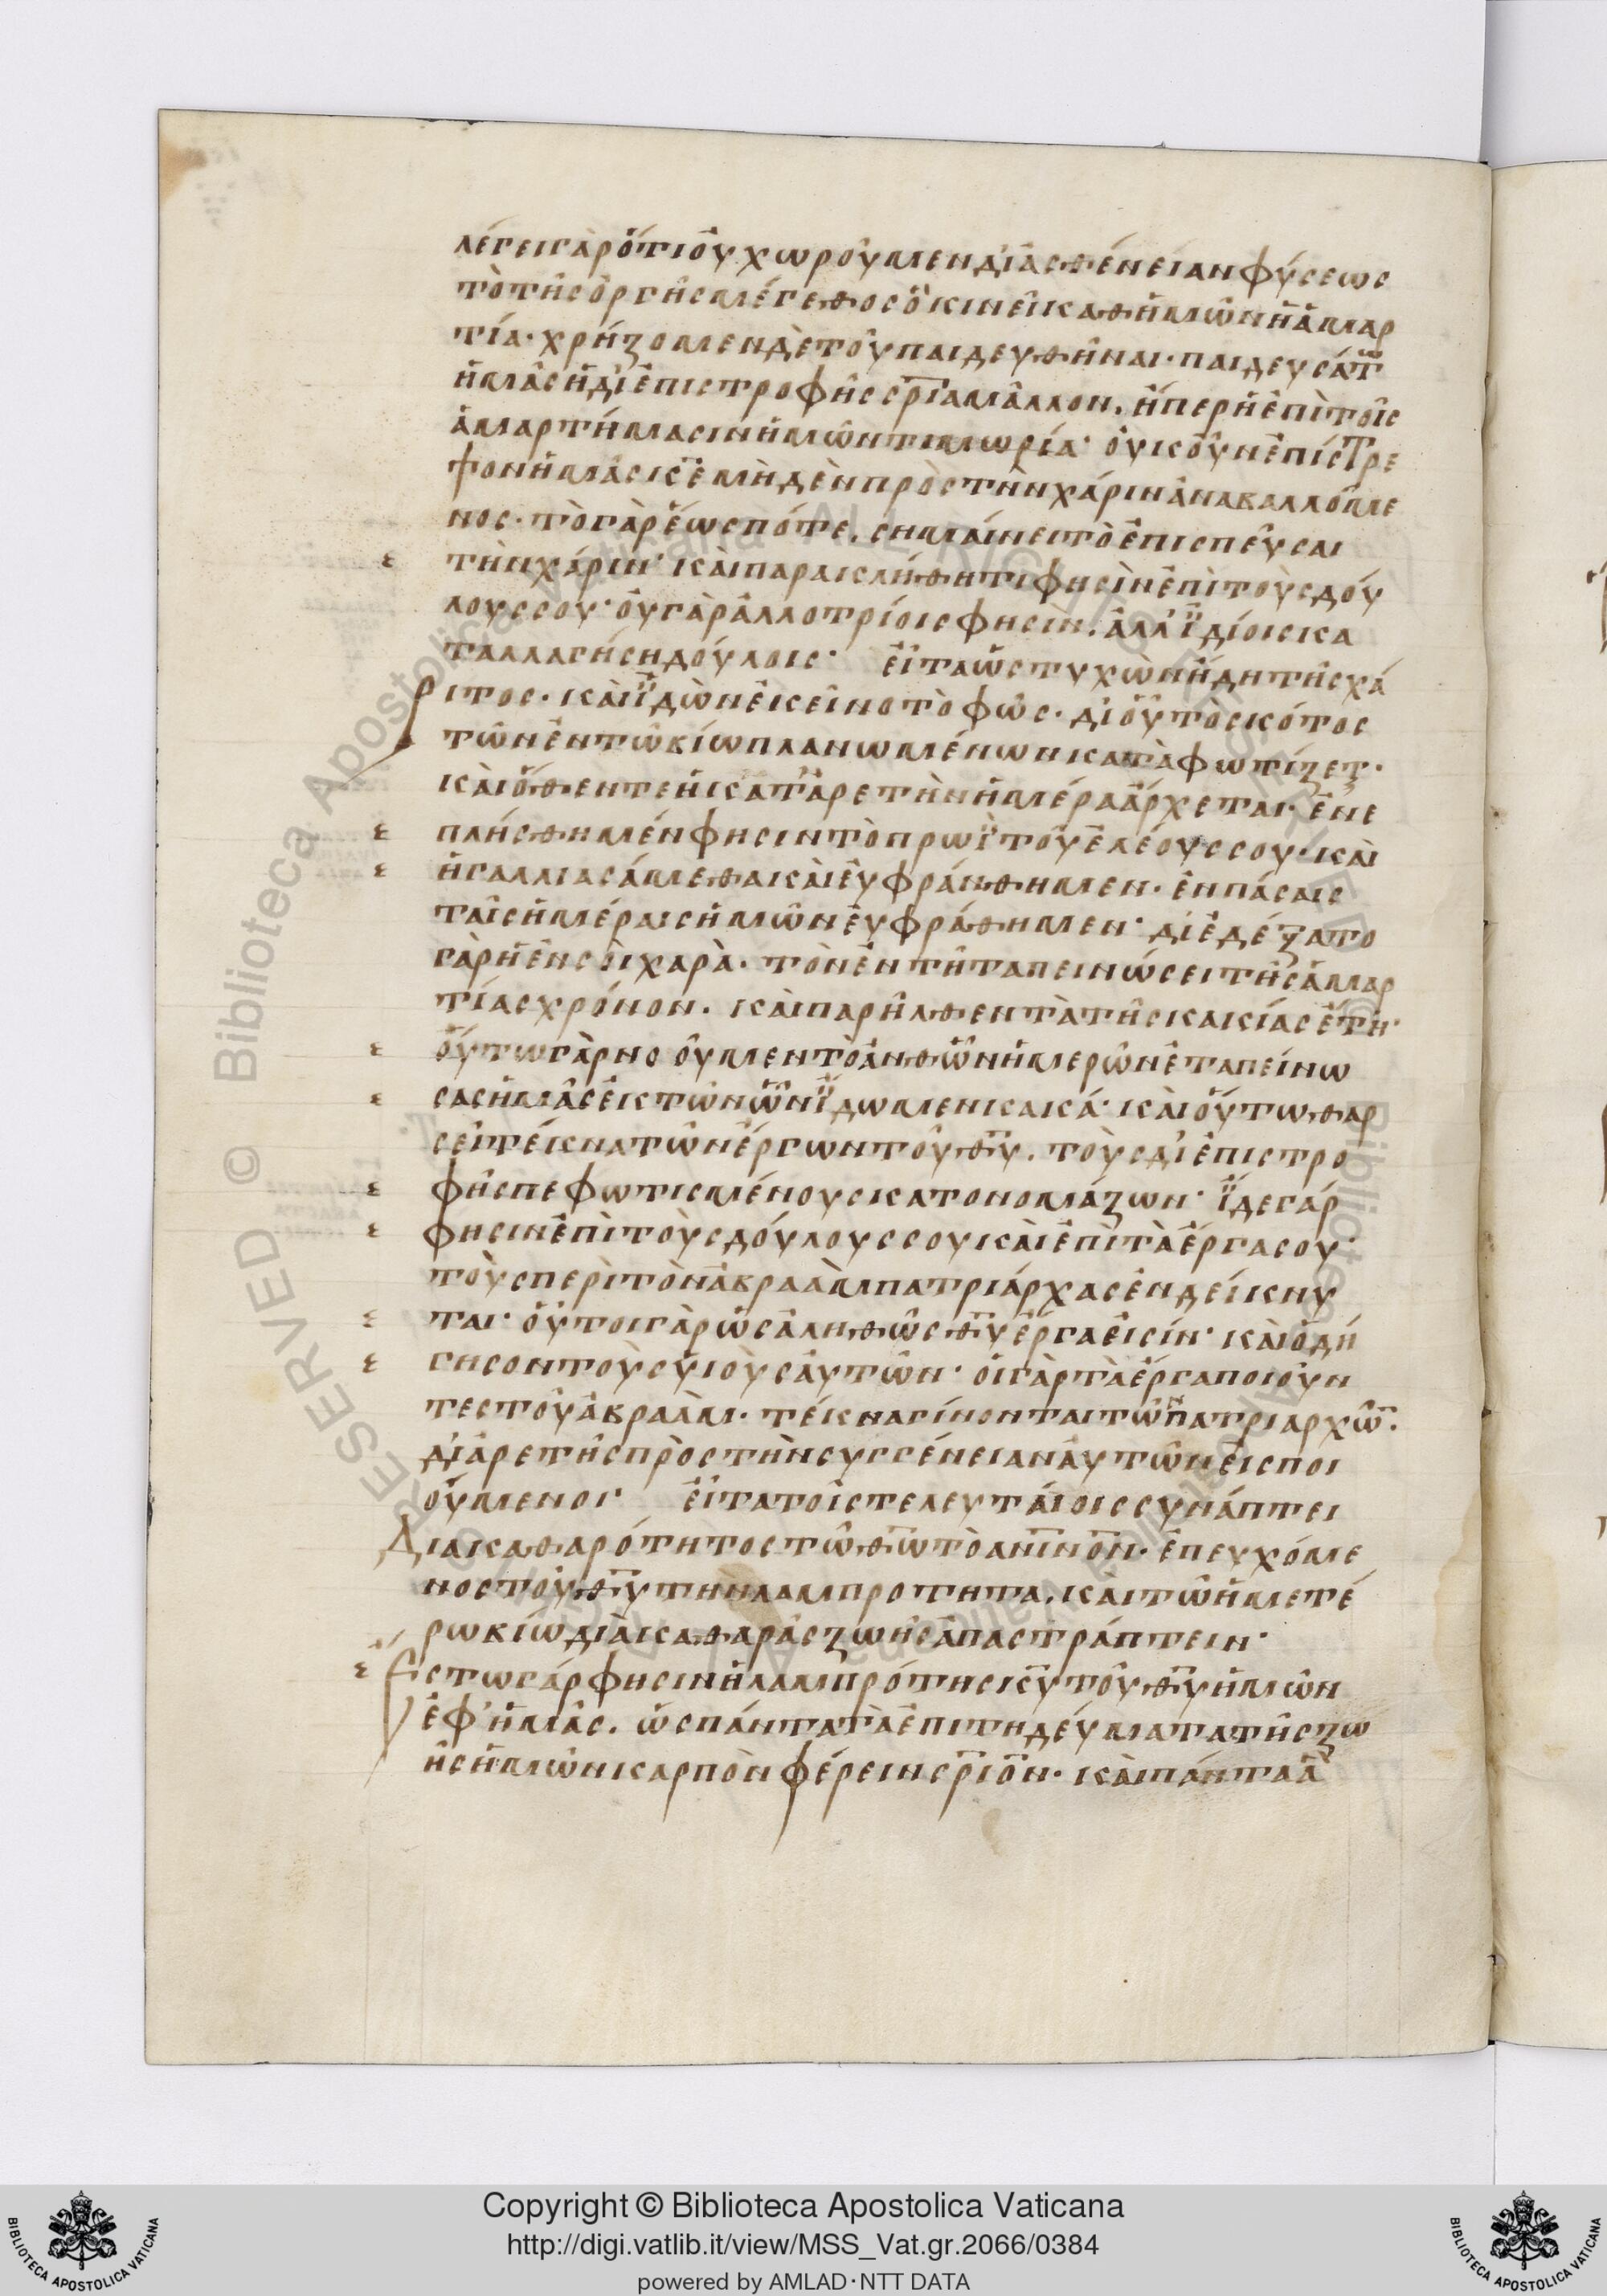 λέγει γὰρ ὅτι οὐ χωροῦμεν δι' ἀσθένειαν φύσεως
τὸ τῆς ὀργῆς μέγεθος ὃ κινεῖ καθ' ἡμῶν ἡ ἁμαρ
τία· χρήζομεν δὲ τοῦ παιδευθῆναι· παιδευσάτ
ἡμᾶς ἡ δι' ἐπιστροφῆς σρία μᾶλλον, ἤπερ ἡ ἐπὶ τοῖς
ἁμαρτήμασιν ἡμῶν τιμωρία· οὐκοῦν ἐπίστρε
ψον ἡμᾶς κε μηδὲν πρὸς τὴν χάριν ἀναβαλλόμε
νος· τὸ γὰρ ἕως πότε, σημαίνει τὸ ἐπισπεῦσαι
τὴν χάριν· καὶ παρακλήθητι φησὶν ἐπὶ τοὺς δού
λους σου· οὐ γὰρ ἀλλοτρίοις φησὶν, ἀλλ' ἰδίοις κα
ταλλαγήση δούλοις· εἶτα ὡς τυχὼν ἤδη τῆς χά
ριτος· καὶ ἰδὼν ἐκεῖνο τὸ φῶς· δι' οὗ τὸ σκότος
τῶν ἐν τῷ βίω πλανωμένων καταφωτίζετ·
καὶ ὅθεν τε ἡ κατ' ἀρετὴν ἡμέρα ἄρχεται· ἐνε
πλήσθημέν φησιν τὸ πρωῒ τοῦ ἐλέους σου· καὶ
ἠγαλλιασάμεθα καὶ εὐφράνθημεν· ἐν πάσαις
ταῖς ἡμέραις ἡμῶν εὐφράθημεν· διεδέξατο
γὰρ ἡ ἐν σοὶ χαρὰ· τὸν ἐν τῆ ταπεινώσει τῆς ἁμαρ
τίας χρόνον· καὶ παρῆλθεν τὰ τῆς κακίας ἔτη·
οὕτω γὰρ νο οῦμεν τὸ ἀνθ' ὧν ἡμερῶν ἐταπείνω
σας ἡμᾶς ἐκ τῶν ὧν ἴδωμεν κακά· καὶ οὕτω θαρ
σεῖ τέκνα τῶν ἔργων τοῦ θυ, τοὺς δι' ἐπιστρο
φῆς πεφωτισμένους κατονομάζων· ἴδε γάρ
φησιν ἐπὶ τοὺς δούλους σου καὶ ἐπὶ τὰ ἔργα σου·
τοὺς περὶ τὸν ἀβραὰμ πατριάρχας ἐνδείκνυ
ται· οὗτοι γὰρ ὡς ἀληθῶς θυ ἔργα εἰσίν· καὶ ὁδή
γησον τοὺς υἱοὺς αὐτῶν· οἱ γὰρ τὰ ἔργα ποιοῦν
τες τοῦ ἀβραὰμ· τέκνα γίνονται τῶν πατριαρχῶ·
δι' ἀρετῆς πρὸς τὴν συγγένειαν αὐτῶν εἰσποι
ούμενοι· εἶτα τοῖς τελευταίοις συνάπτει
Δια καθαρότητος τῶ θω τὸ ανινον· ἐπευχόμε
νος τοῦ θυ τὴν λαμπροτητα, καὶ τῶ ἡμετέ
ρω βίω διὰ καθαρᾶς ζωῆς ἀπαστράπτειν·
Ἔστω γάρ φησιν ἡ λαμπρότης κυ τοῦ θυ ἡμῶν
ἐφ' ἡμᾶς, ὡς πάντα τὰ ἐπιτηδεύματα τῆς ζω
ῆς ἡμῶν καρπὸν φέρειν σριον· καὶ πάντα ἃ